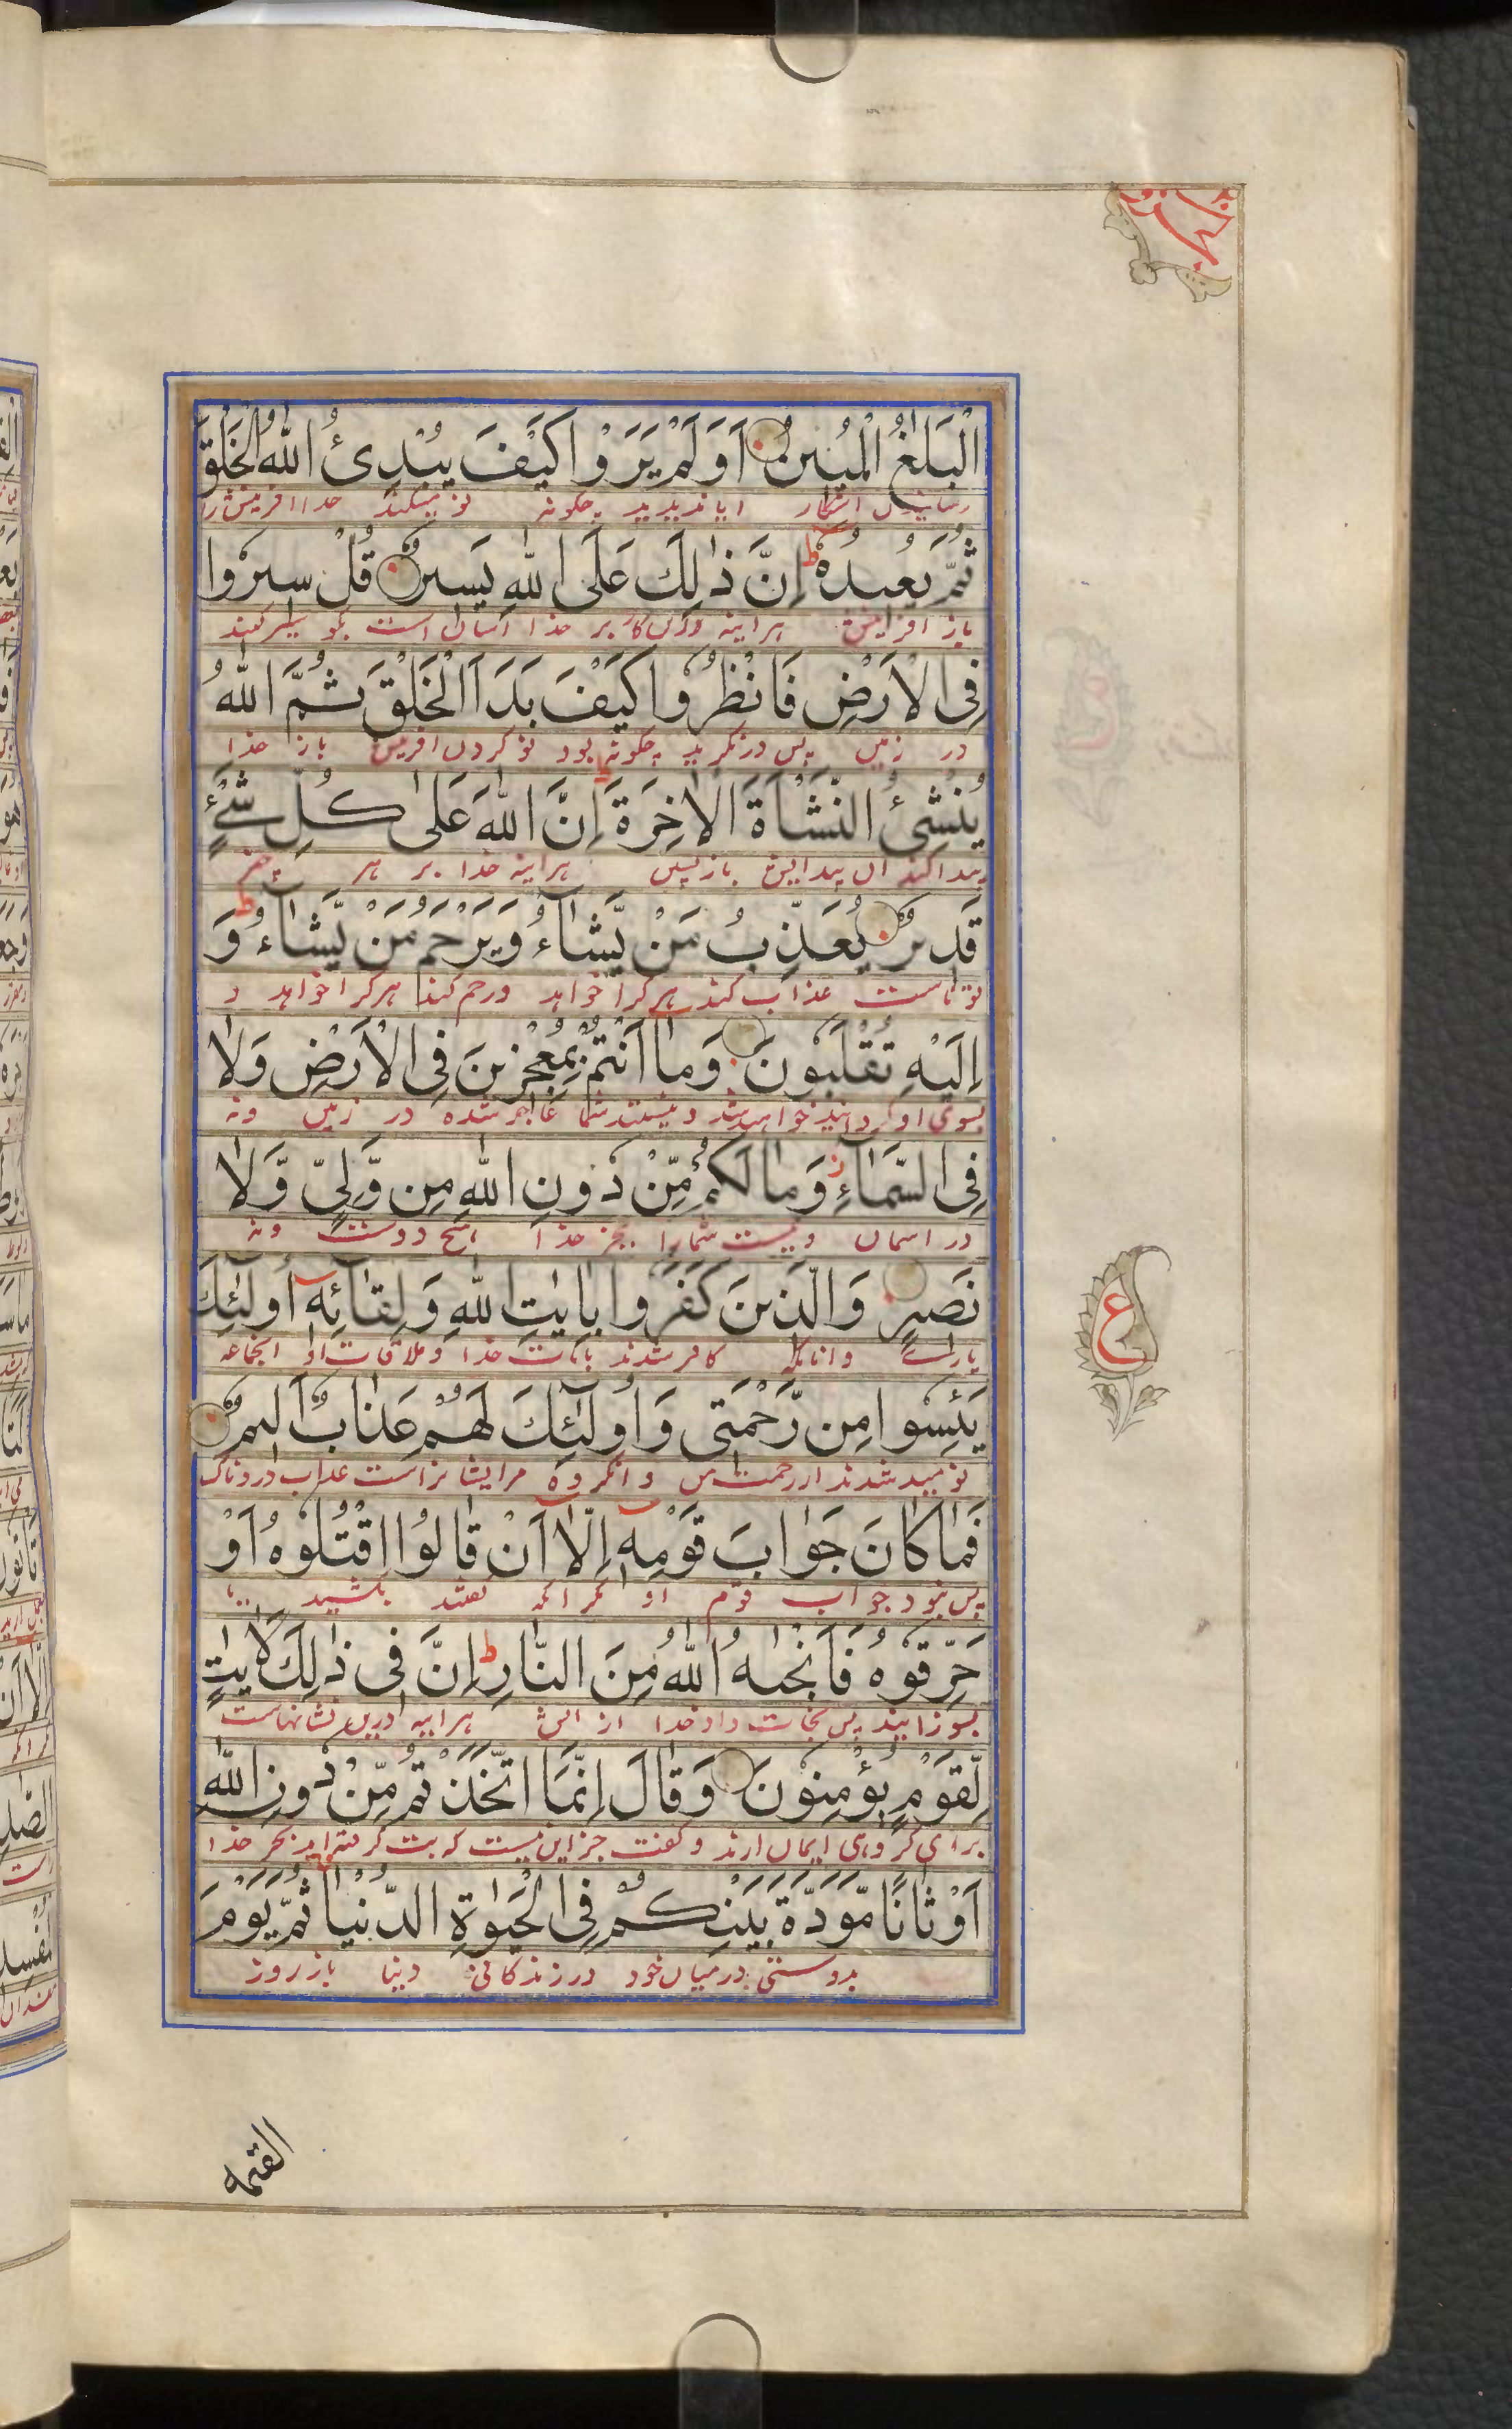 اَلْبَلٰغُ الْمُبِيْنُ اَوَلَمْ يَرَوْا كَيْفَ يُبْدِئُ اللّٰهُ الْخَلْقَ
ثُمَّ يُعِيْدُهٗ ط اِنَّ ذٰلِكَ عَلَى اللّٰهِ يَسِيْرٌ قُلْ سِيْرُوْا
باز هراينه كار بر خدا آسان است بكو سير كنيد
فِى الْاَرْضِ فَانْظُرُوْا كَيْفَ بَدَاَ الْخَلْقَ ثُمَّ اللّٰهُ
در زمين پس در نكريد چكونه بود نو كردن افرينش باز خدا
يُنْشِئُ النَّشْاَةَ الْاٰخِرَةَ ط اِنَّ اللّٰهَ عَلٰى كُلِّ شَىْءٍ
پيدا كند ان پيدايش بازپسين هراينه خدا بر هر چيز
قَدِيْرٌ يُعَذِّبُ مَنْ يَّشَآءُ وَيَرْحَمُ مَنْ يَّشَآءُ ط وَ
تواناست عذاب كند هر كرا خواهد و رحم كند هر كرا خواهد و
اِلَيْهِ تُقْلَبُوْنَ وَمَآ اَنْتُمْ بِمُعْجِزِيْنَ فِى الْاَرْضِ وَلَا
بسوى او كردانيده خواهيد شد و نيستند شما عاجز شده در زمين و نه
فِى السَّمَآءِ ز وَمَا لَكُمْ مِّنْ دُوْنِ اللّٰهِ مِنْ وَّلِىٍّ وَّلَا
در اسمان و نيست شما را بجز خدا هيچ دوست و نه
نَصِيْرٍ وَالَّذِيْنَ كَفَرُوْا بِاٰيٰتِ اللّٰهِ وَلِقَآئِهٖٓ اُولٰٓئِكَ
يارى و انانكه كافر شدند بايات خدا و ملاقات او انجماعه
يَئِسُوْا مِنْ رَّحْمَتِىْ وَاُولٰٓئِكَ لَهُمْ عَذَابٌ اَلِيْمٌ
نوميد شدند از رحمت من و انكروه مر ايشانراست عذاب دردناك
فَمَا كَانَ جَوَابَ قَوْمِهٖٓ اِلَّآ اَنْ قَالُوا اقْتُلُوْهُ اَوْ
پس نبود جواب قوم او مكر انكه كفتند بكشيد يا
حَرِّقُوْهُ فَاَنْجٰىهُ اللّٰهُ مِنَ النَّارِ ط اِنَّ فِىْ ذٰلِكَ لَاٰيٰتٍ
بسوزانيد پس نجات داد خدا از اتش هراينه درين نشانهاست
لِّقَوْمٍ يُّؤْمِنُوْنَ وَقَالَ اِنَّمَا اتَّخَذْتُمْ مِّنْ دُوْنِ اللّٰهِ
براى كروهى ايمان ارند و كفت جز اين نيست كه بت كرفته ايد بجز خدا
اَوْثَانًا مَّوَدَّةَ بَيْنِكُمْ فِى الْحَيٰوةِ الدُّنْيَا ثُمَّ يَوْمَ
بدوستى در ميان خود در زندكانى دنيا باز روز
ع
القيمه